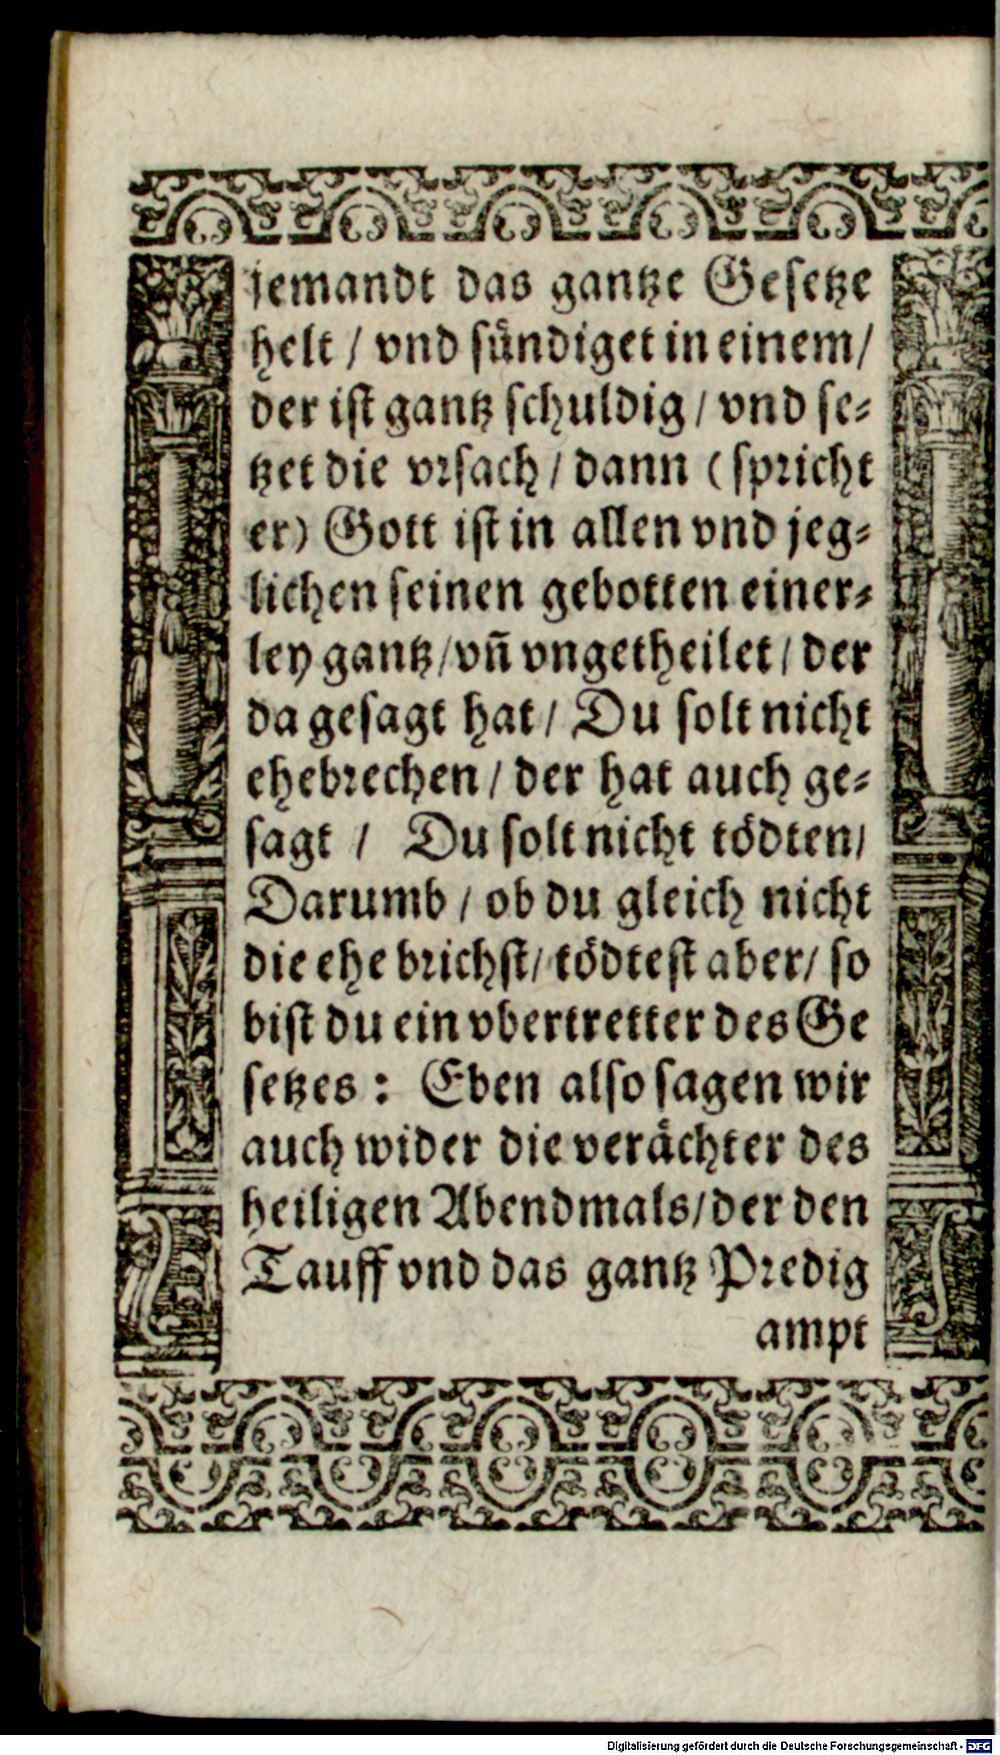 jemandt das gantze Gesetze
helt / vnd sündiget in einem/
der ist gantz schuldig / vnd se-
tzet die vrsach / dann ( spricht
er) Gott ist in allen vnd jeg-
lichen seinen gebotten einer-
ley gantz / vñ vngetheilet / der
da gesagt hat / Du solt nicht
ehebrechen / der hat auch ge-
sagt / Du solt nicht tödten/
Darumb / ob du gleich nicht
die ehe brichst / tödtest aber / so
bist du ein vbertretter des Ge
setzes : Eben also sagen wir
auch wider die verächter des
heiligen Abendmals / der den
Tauff vnd das gantz Predig
ampt
Digitalisierung gefördert durch die Deutsche Forschungsgemeinschaft - DFG